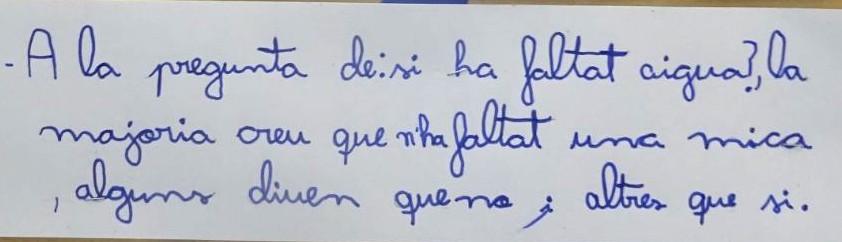 - A la pregunta de: si ha faltat aigua?, la
majoria creu que n'ha faltat una mica
, alguns diuen que no i altres que si.